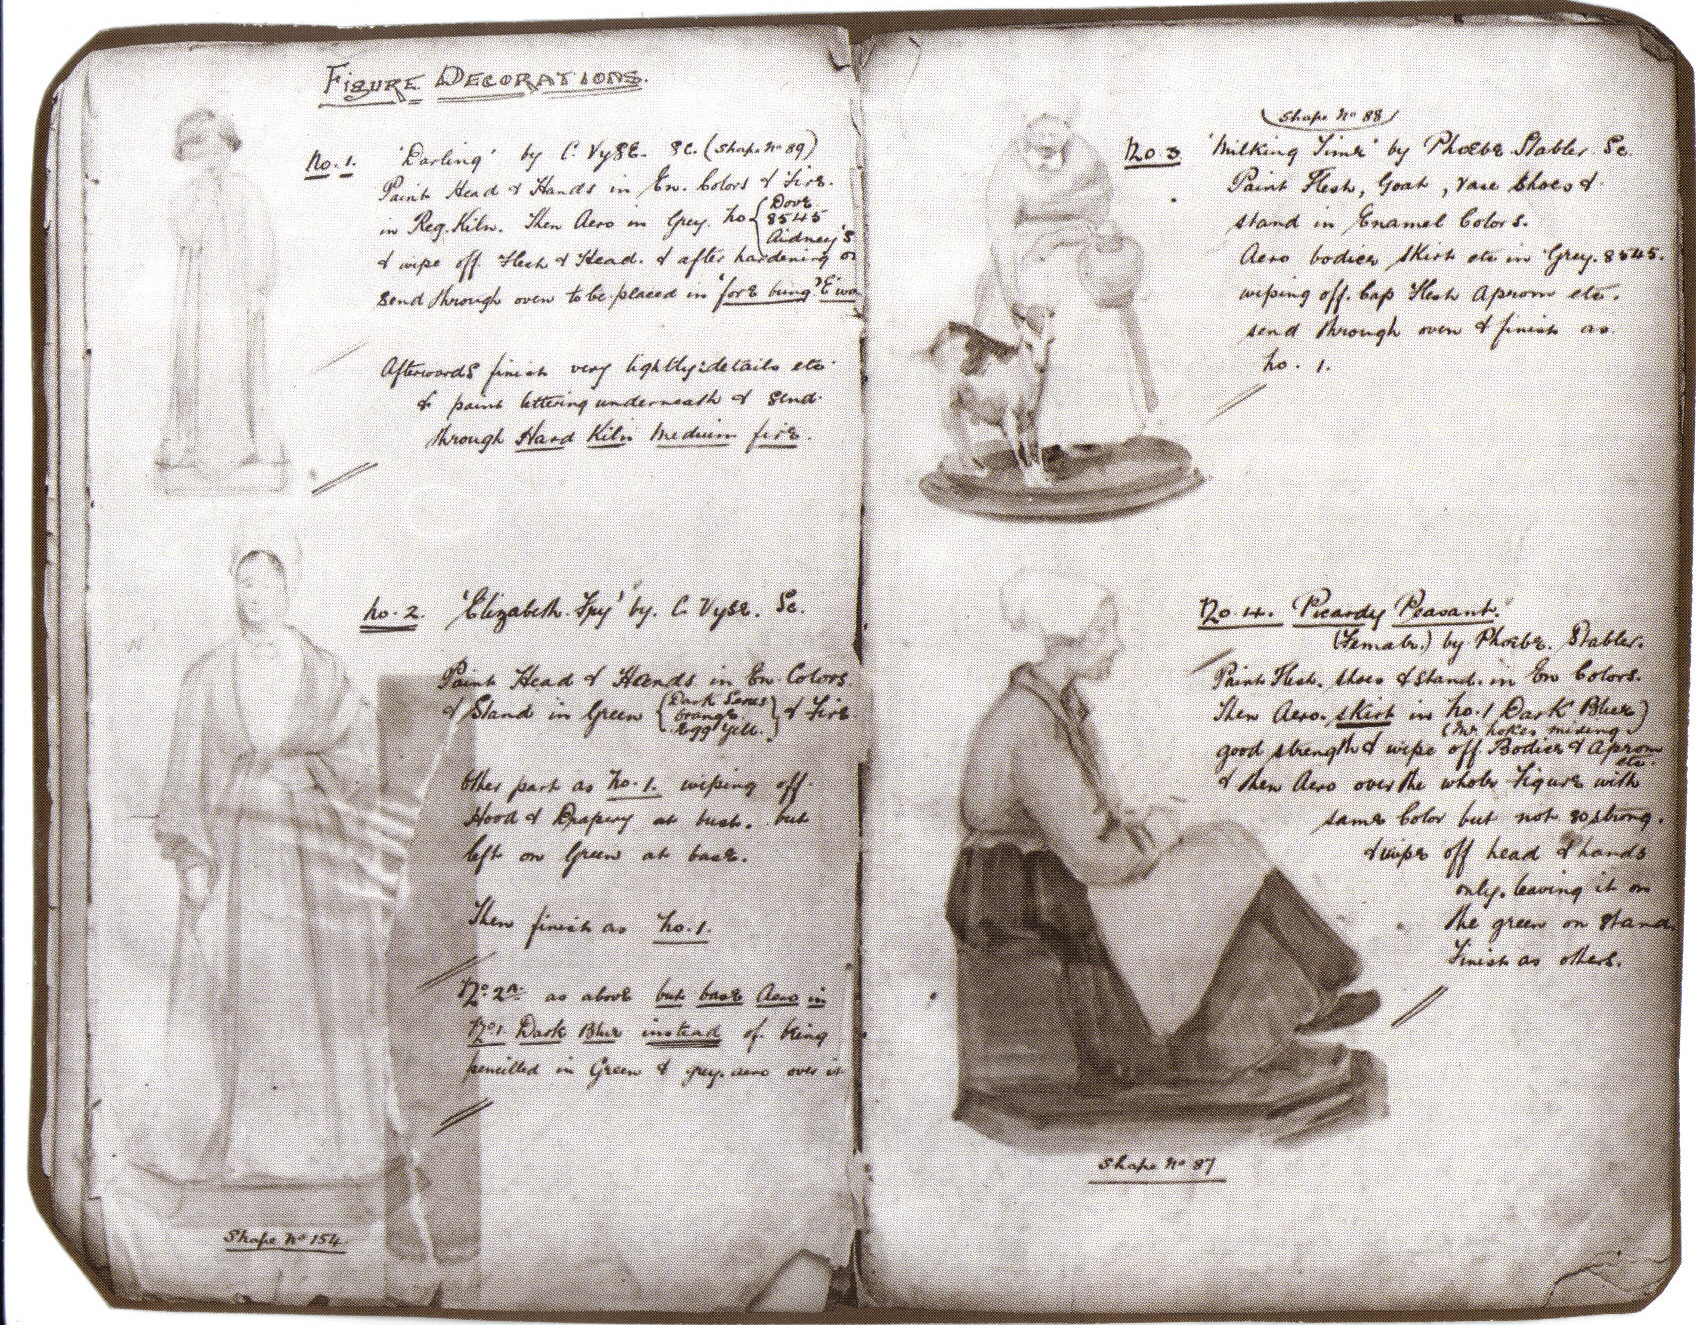 FIGURE DECORATIONS.
No. 1. 'Darling' by C. Vyse. Sc. (Shape No 89)
Paint Head & Hands in En. Colors & Fire.
in Reg. Kiln. Then Aero in Grey. No { Dove
8545
Aidney's
& wipe off Flesh & Head. & after hardening on
send through oven to be placed in 'fore bung' E
Afterwards finish very lightly: details etc
& paint lettering underneath & send
through Hard Kiln Medium fire.
No. 2. 'Elizabeth Fry' by. C. Vyse. Sc.
Paint Head & Hands in En. Colors
& Stand in Green { Dark
Orange
Egg Yell. } & Fire.
Other part as No. 1. wiping off
Hood & Drapery at bust. but
left on Green at base.
Then finish as No. 1.
No. 2A. as above but base Aero in
No 1. Dark Blue instead of being
pencilled in Green & grey. aero over it
Shape No 154
Shape No 88
No 3 'Milking Time' by Phoebe Stabler. Sc.
Paint Flesh, Goat, Vase Shoes &
stand in Enamel Colors.
Aero bodice, skirt etc in Grey. 8545.
wiping off. Cap Flesh Apron etc.
send through oven & finish as
No. 1.
No. 4. Picardy Peasant.
(Female.) by Phoebe. Stabler.
Paint Flesh. shoes & stand. in En Colors.
Then Aero. skirt in No. 1 Dark Blue)
(Mr Noke's mixing)
good strength & wipe off Bodice & Apron
etc.
& then Aero over the whole Figure with
same Color but not so strong.
& wipe off head & hands
only. leaving it on
the green on stand.
Finish as others.
Shape No 87